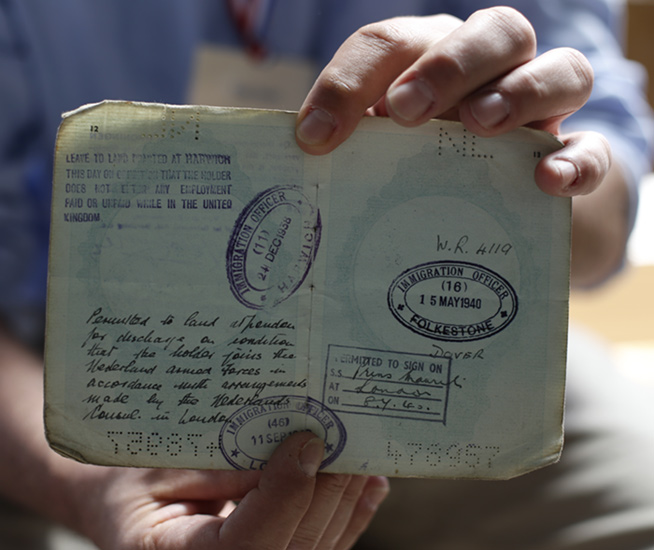 12
LEAVE TO LAND GRANTED AT HARWICH
THIS DAY ON CONDITION THAT THE HOLDER
DOES NOT ENTER ANY EMPLOYMENT
PAID OR UNPAID WHILE IN THE UNITED
KINGDOM
IMMIGRATION OFFICER
(11)
24 DEC 1938
HARWICH
Permitted to land at
for discharge on condition
that the holder joins the
Nederland armed forces in
accordance with arrangements
made by the Nederlands
Consul in London
IMMIGRATION OFFICER
(46)
11 SEP
LO
NL
W.R. 4119
IMMIGRATION OFFICER
(16)
15 MAY 1940
FOLKESTONE
DOVER
PERMITTED TO SIGN ON
S.S.
AT London
ON